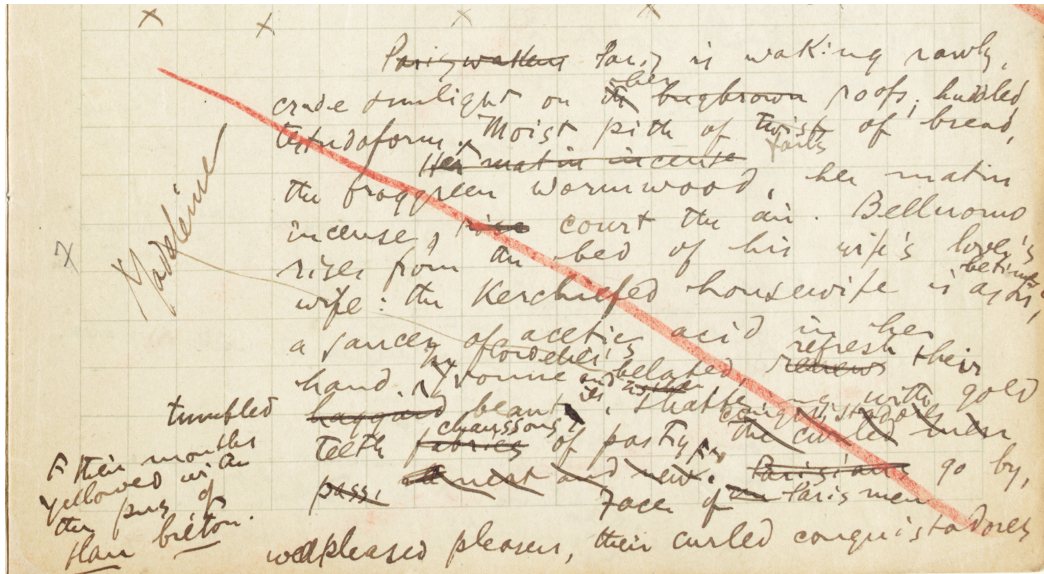 Paris is waking rawly,
crude sunlight on her roofs, huddled
testudoform. Moist pith of farls of bread,
Her matin incense
the froggreen wormwood, her matin
incense, court the air. Belluomo
rises from the bed of his wife's lover's
wife: the kerchiefed housewife is astir, betimes
a saucer of acetic acid in her
hand. In Rodener's refresh their
Yvonne and belated
Madeleine
tumbled beauties, shattering with gold
teeth chaussons of pastry,
F their mouths
yellowed with
the pus of
flan breton.
pass. Faces of Paris men go by,
wellpleased pleasers, their curled conquistadores